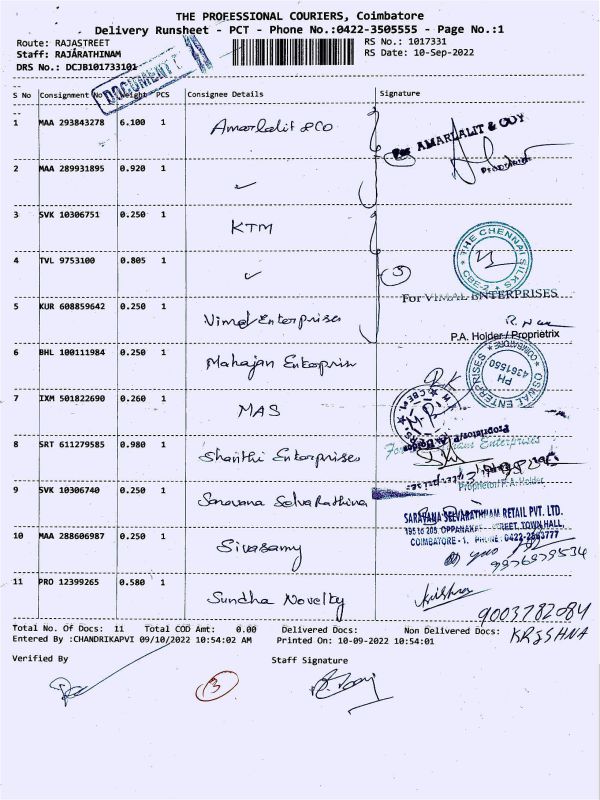 THE PROFESSIONAL COURIERS, Coimbatore
Delivery Runsheet - PCT - Phone No.:0422-3505555 - Page No.:1
Route: RAJASTREET RS No.: 1017331
Staff: RAJARATHINAM RS Date: 10-Sep-2022
DRS No.: DCJB101733101
DOCUMENT
S No Consignment No Weight PCS Consignee Details Signature
1 MAA 293843278 6.100 1 Amarlalit & Co
For AMARLALIT & COY
Proprietor
2 MAA 289931895 0.920 1 ✓
3 SVK 10306751 0.250 1 KTM
★ THE CHENNAI SILKS ★ CBE-2
4 TVL 9753100 0.805 1 ✓
5
For VIMAL ENTERPRISES
5 KUR 608859642 0.250 1 Vimal Enterprises
P.A. Holder / Proprietrix
6 BHL 100111984 0.250 1 Mahajan Enterprises
OSWAL ENTERPRISES COIMBATORE
PH 4361550
7 IXM 501822690 0.260 1 MAS
8 SRT 611279585 0.980 1 Shanthi Enterprises
Enterprises
Proprietor/P.A. Holder
9 SVK 10306740 0.250 1 Saravana Selva Rathina
SARAVANA SELVARATHNAM RETAIL PVT. LTD.
195 to 205, OPPANAKARA STREET, TOWN HALL,
COIMBATORE - 1. PHONE: 0422-2563777
10 MAA 288606987 0.250 1 Sivasamy
9976979534
11 PRO 12399265 0.580 1 Sundha Novelty
Krishna
9003782084
KRISHNA
Total No. Of Docs: 11 Total COD Amt: 0.00 Delivered Docs: Non Delivered Docs:
Entered By :CHANDRIKAPVI 09/10/2022 10:54:02 AM Printed On: 10-09-2022 10:54:01
Verified By Staff Signature
13